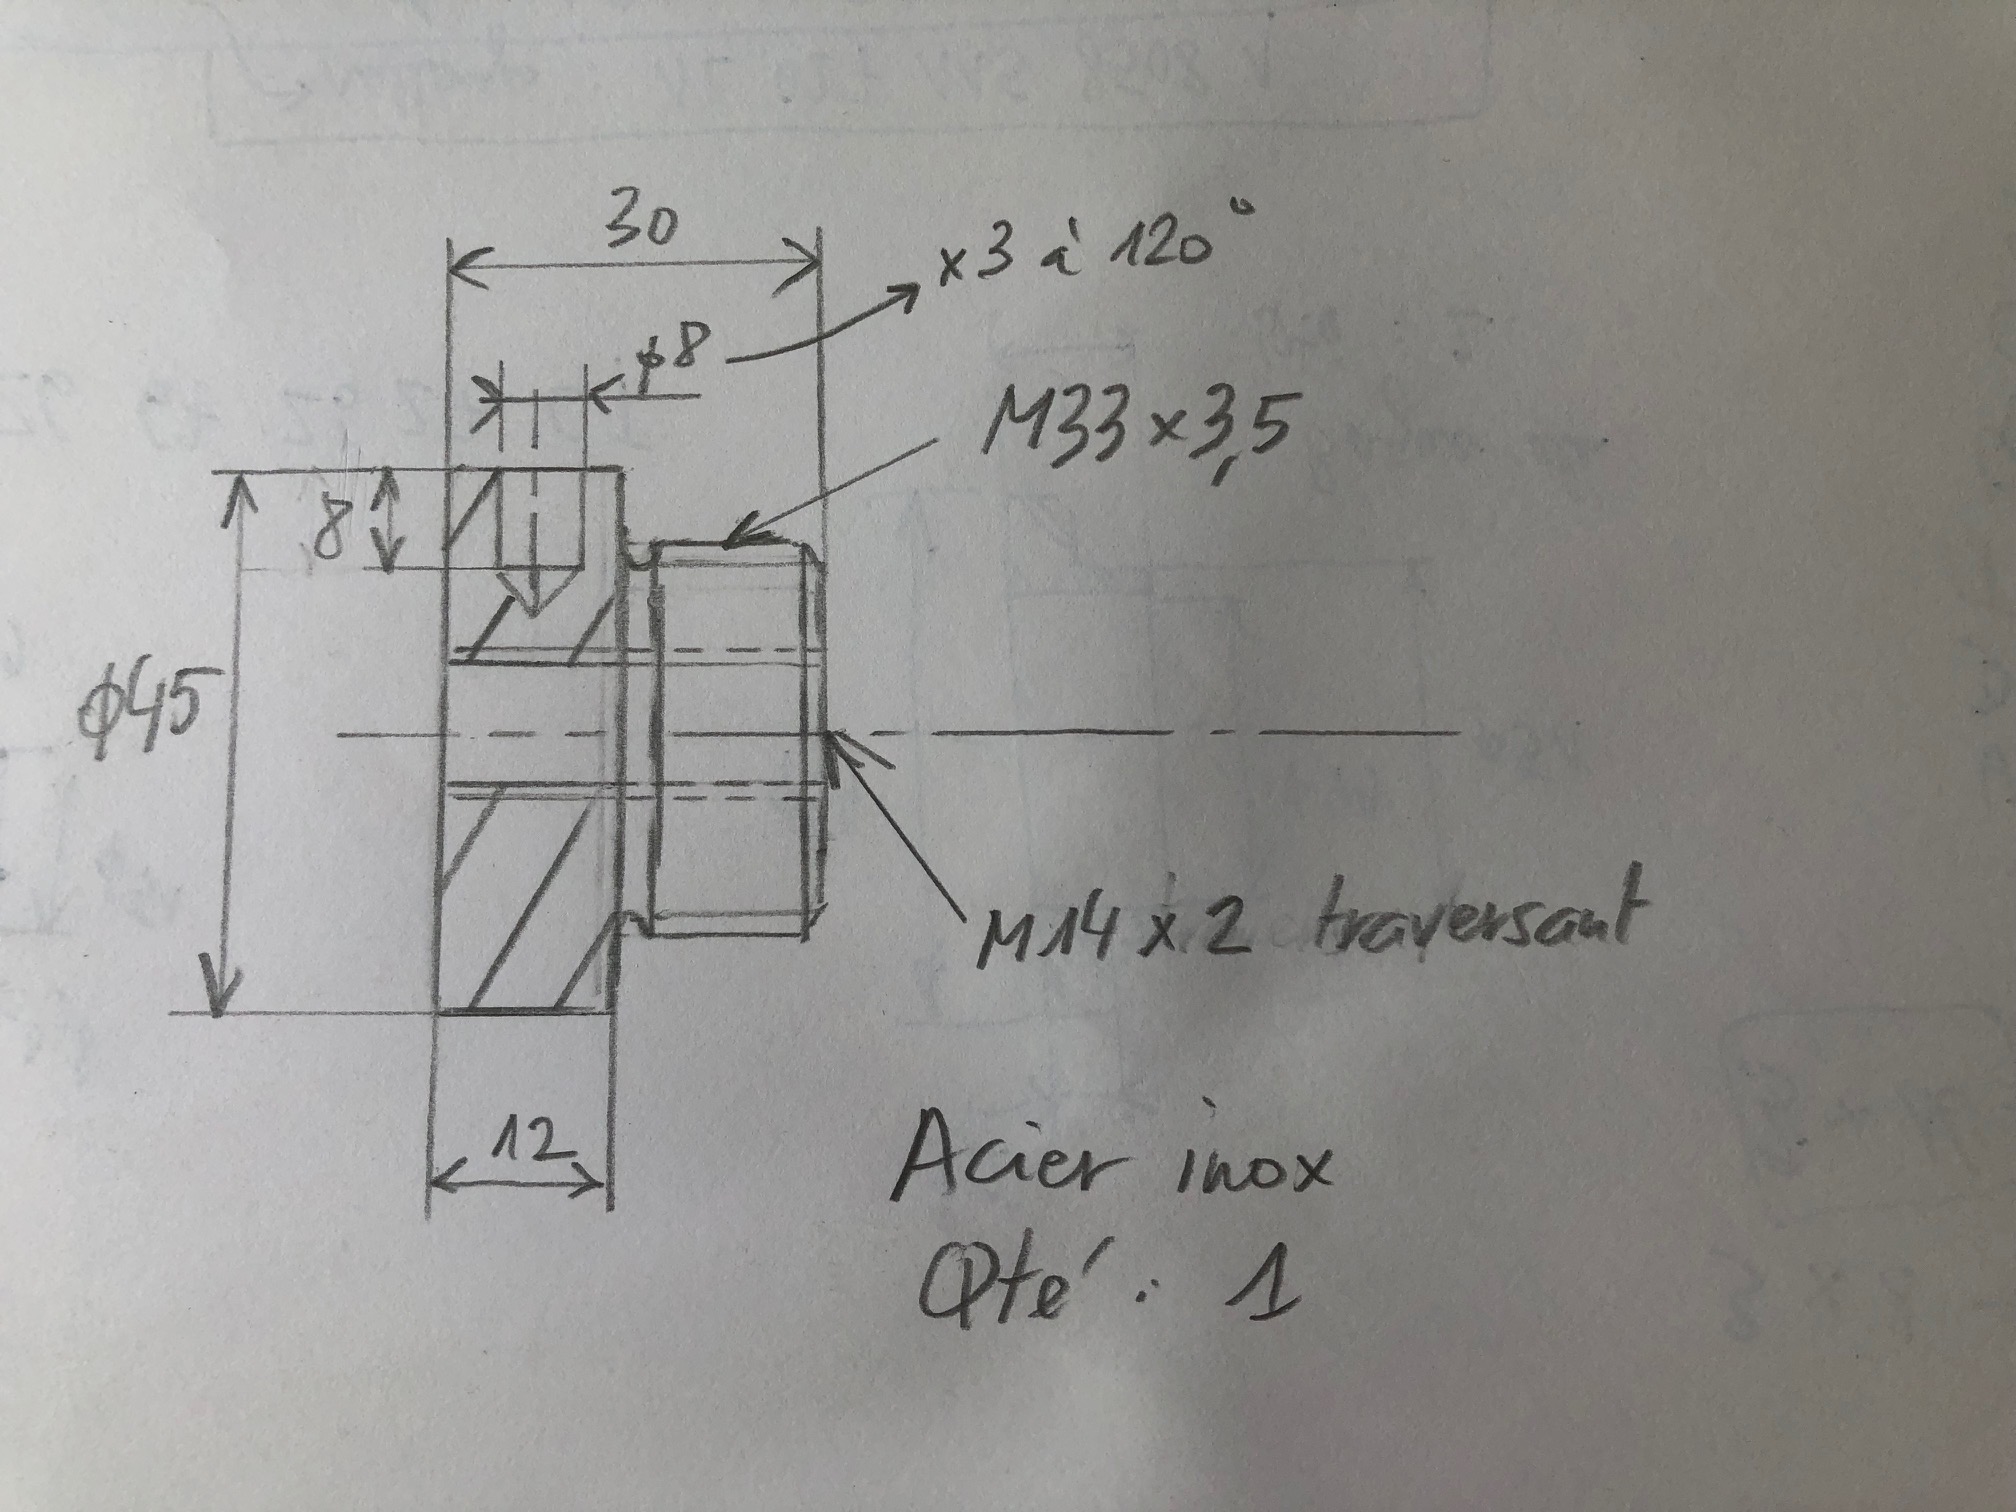 30
x3 à 120°
ϕ8
M33 x 3,5
8
ϕ45
M14 x 2 traversant
12
Acier inox
Qté : 1